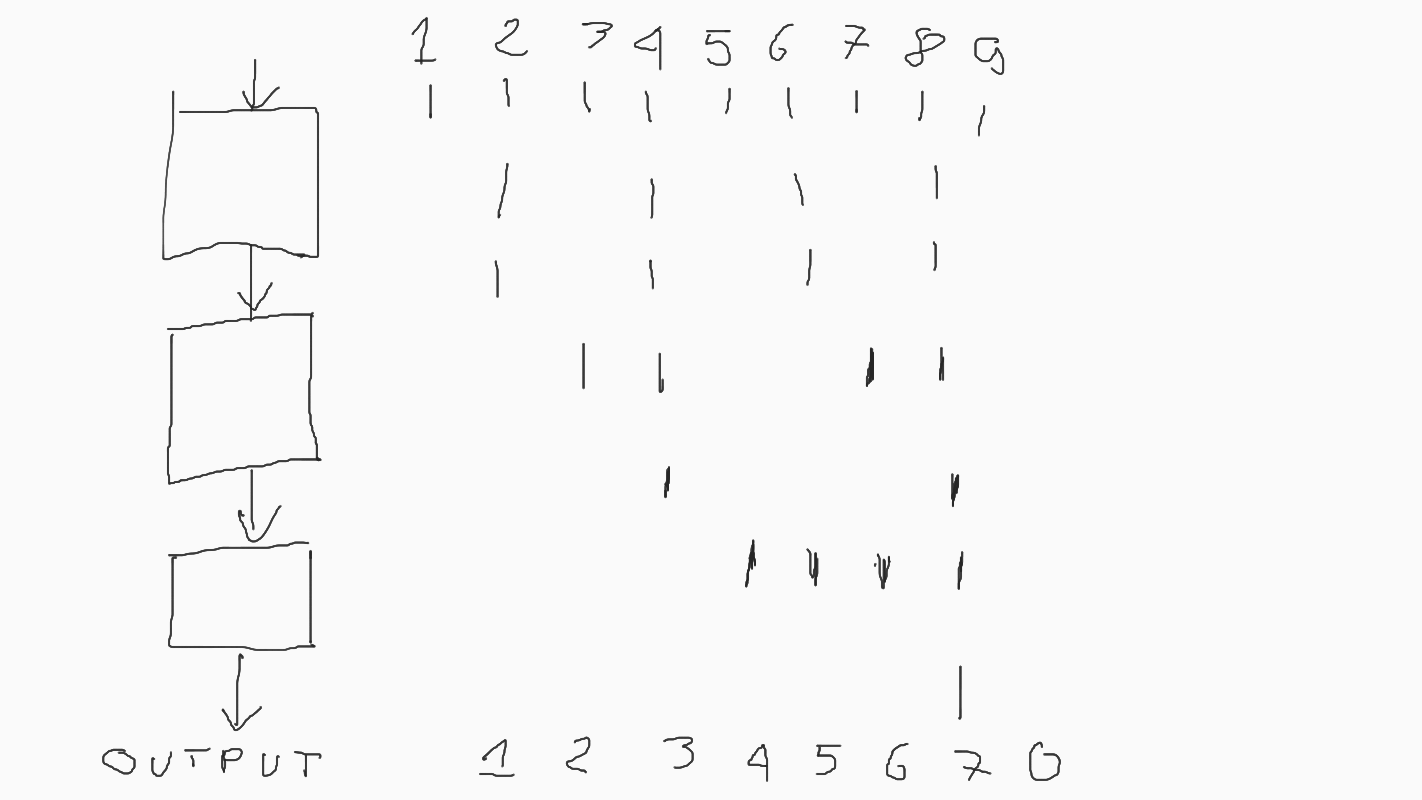 1 2 3 4 5 6 7 8 9
OUTPUT 1 2 3 4 5 6 7 0